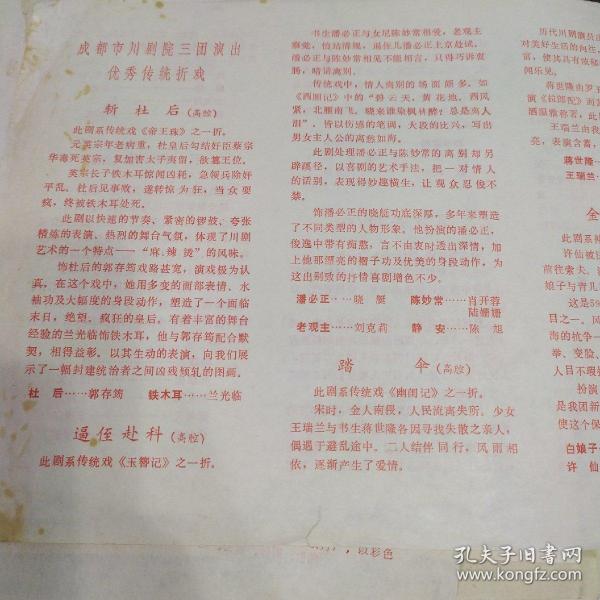 成都市川剧院三团演出
优秀传统折戏
斩杜后(高腔)
此剧系传统戏《帝王珠》之一折。
元英宗年老病重，杜皇后勾结奸臣蔡宗
华毒死英宗，复加害太子夷留，欲篡王位。
英宗长子铁木耳惊闻凶耗，急领兵除奸
平乱。杜后见事败，遂转惊为狂，当众耍
疯，终被铁木耳处死。
此剧以快速的节奏、紧密的锣鼓、夸张
精炼的表演、热烈的舞台气氛，体现了川剧
艺术的一个特点——“麻、辣、烫”的风味。
饰杜后的郭存筠戏路甚宽，演戏极为认
真，在这个戏中，她用多变的面部表情、水
袖功及大幅度的身段动作，塑造了一个面临
末日，绝望、疯狂的皇后。有着丰富的舞台
经验的兰光临饰铁木耳，他与郭存筠配合默
契，相得益彰，以其生动的表演，向我们展
示了一幅封建统治者之间凶残倾轧的图画。
杜　后……郭存筠　铁木耳……兰光临
逼侄赴科(高腔)
此剧系传统戏《玉簪记》之一折。
书生潘必正与女尼陈妙常相爱，老观主
察觉，恼结情规，逼侄儿潘必正上京赴试。
潘必正与陈妙常相见不能相言，只得巧诉衷
肠，暗诺离别。
传统戏中，情人离别的场面颇多。如
《西厢记》中的“碧云天，黄花地，西风
紧，北雁南飞。晓来谁染枫林醉？总是离人
泪”。皆以伤感的笔调，大段的比兴，写出
男女主人公的离愁如海。
此剧处理潘必正与陈妙常的离别却另
辟蹊径，以喜剧的艺术手法，把一对情人
的话别，表现得妙趣横生，让观众忍俊不
禁。
饰潘必正的晓艇功底深厚，多年来塑造
了不同类型的人物形象。他扮演的潘必正，
俊逸中带有痴憨，言不由衷时透出深情，加
上他那漂亮的褶子功及优美的身段动作，为
这出别致的抒情喜剧增色不少。
潘必正……晓艇　陈妙常……肖开蓉
陆姗姗
老观主……刘克莉　静安……陈旭
踏伞(高腔)
此剧系传统戏《幽闺记》之一折。
宋时，金人南侵，人民流离失所。少女
王瑞兰与书生蒋世隆各因寻找失散之亲人，
偶遇于避乱途中。二人结伴同行，风雨相
依，逐渐产生了爱情。
历代川剧演员
对美好生活的向往，
富，使其具有浓郁
闻乐见。
蒋世隆由罗
演《拉郎配》而
洒温雅称著，此
王瑞兰由我
亮，表演含蓄，
蒋世隆
王瑞兰
金
此剧系
许仙被
前往索夫。
娘子与青儿
这是59
目之一。风
海的抗争一
举、变脸、
人目不暇接
扮演
是我团新
使这个保
白娘子
许仙
，以彩色
孔夫子旧书网
www.kongfz.com